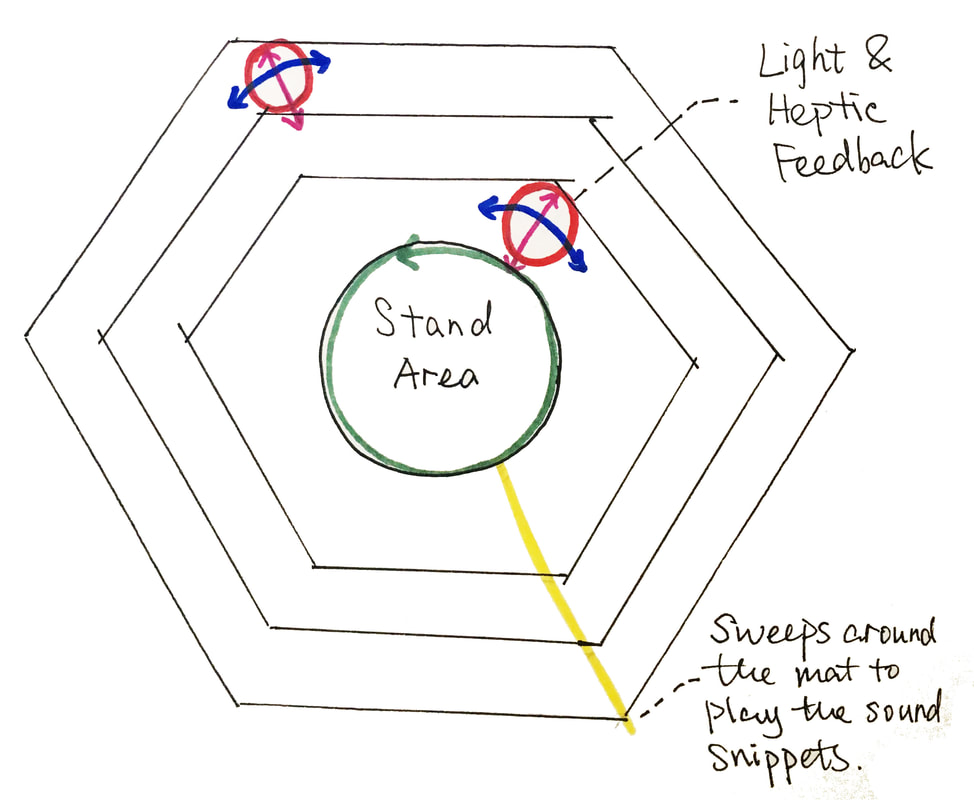 Light &
Heptic
Feedback
Stand
Area
Sweeps around
the mat to
play the sound
snippets.